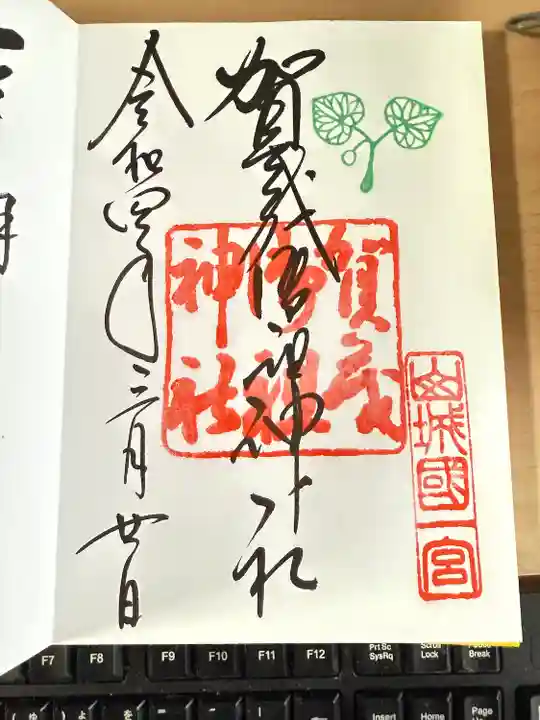 山城國一宮
賀茂御祖神社
賀茂
御祖
神社
令和四年三月廿日
F7 F8 F9 F10 F11 F12 Prt Sc SysRq Scroll Lock Pause Break
Insert Home Page